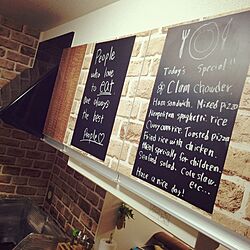 People
who love
to eat
are always
the best
People♡
Today's Special!!
Clam chowder.
Ham sandwich. Mixed pizza
Neapolitan spaghetti rice
Curry rice Toasted pizza
Fried rice with chicken.
Meal specially for children.
Seafood salad. Cole slaw.
etc...
Have a nice day!